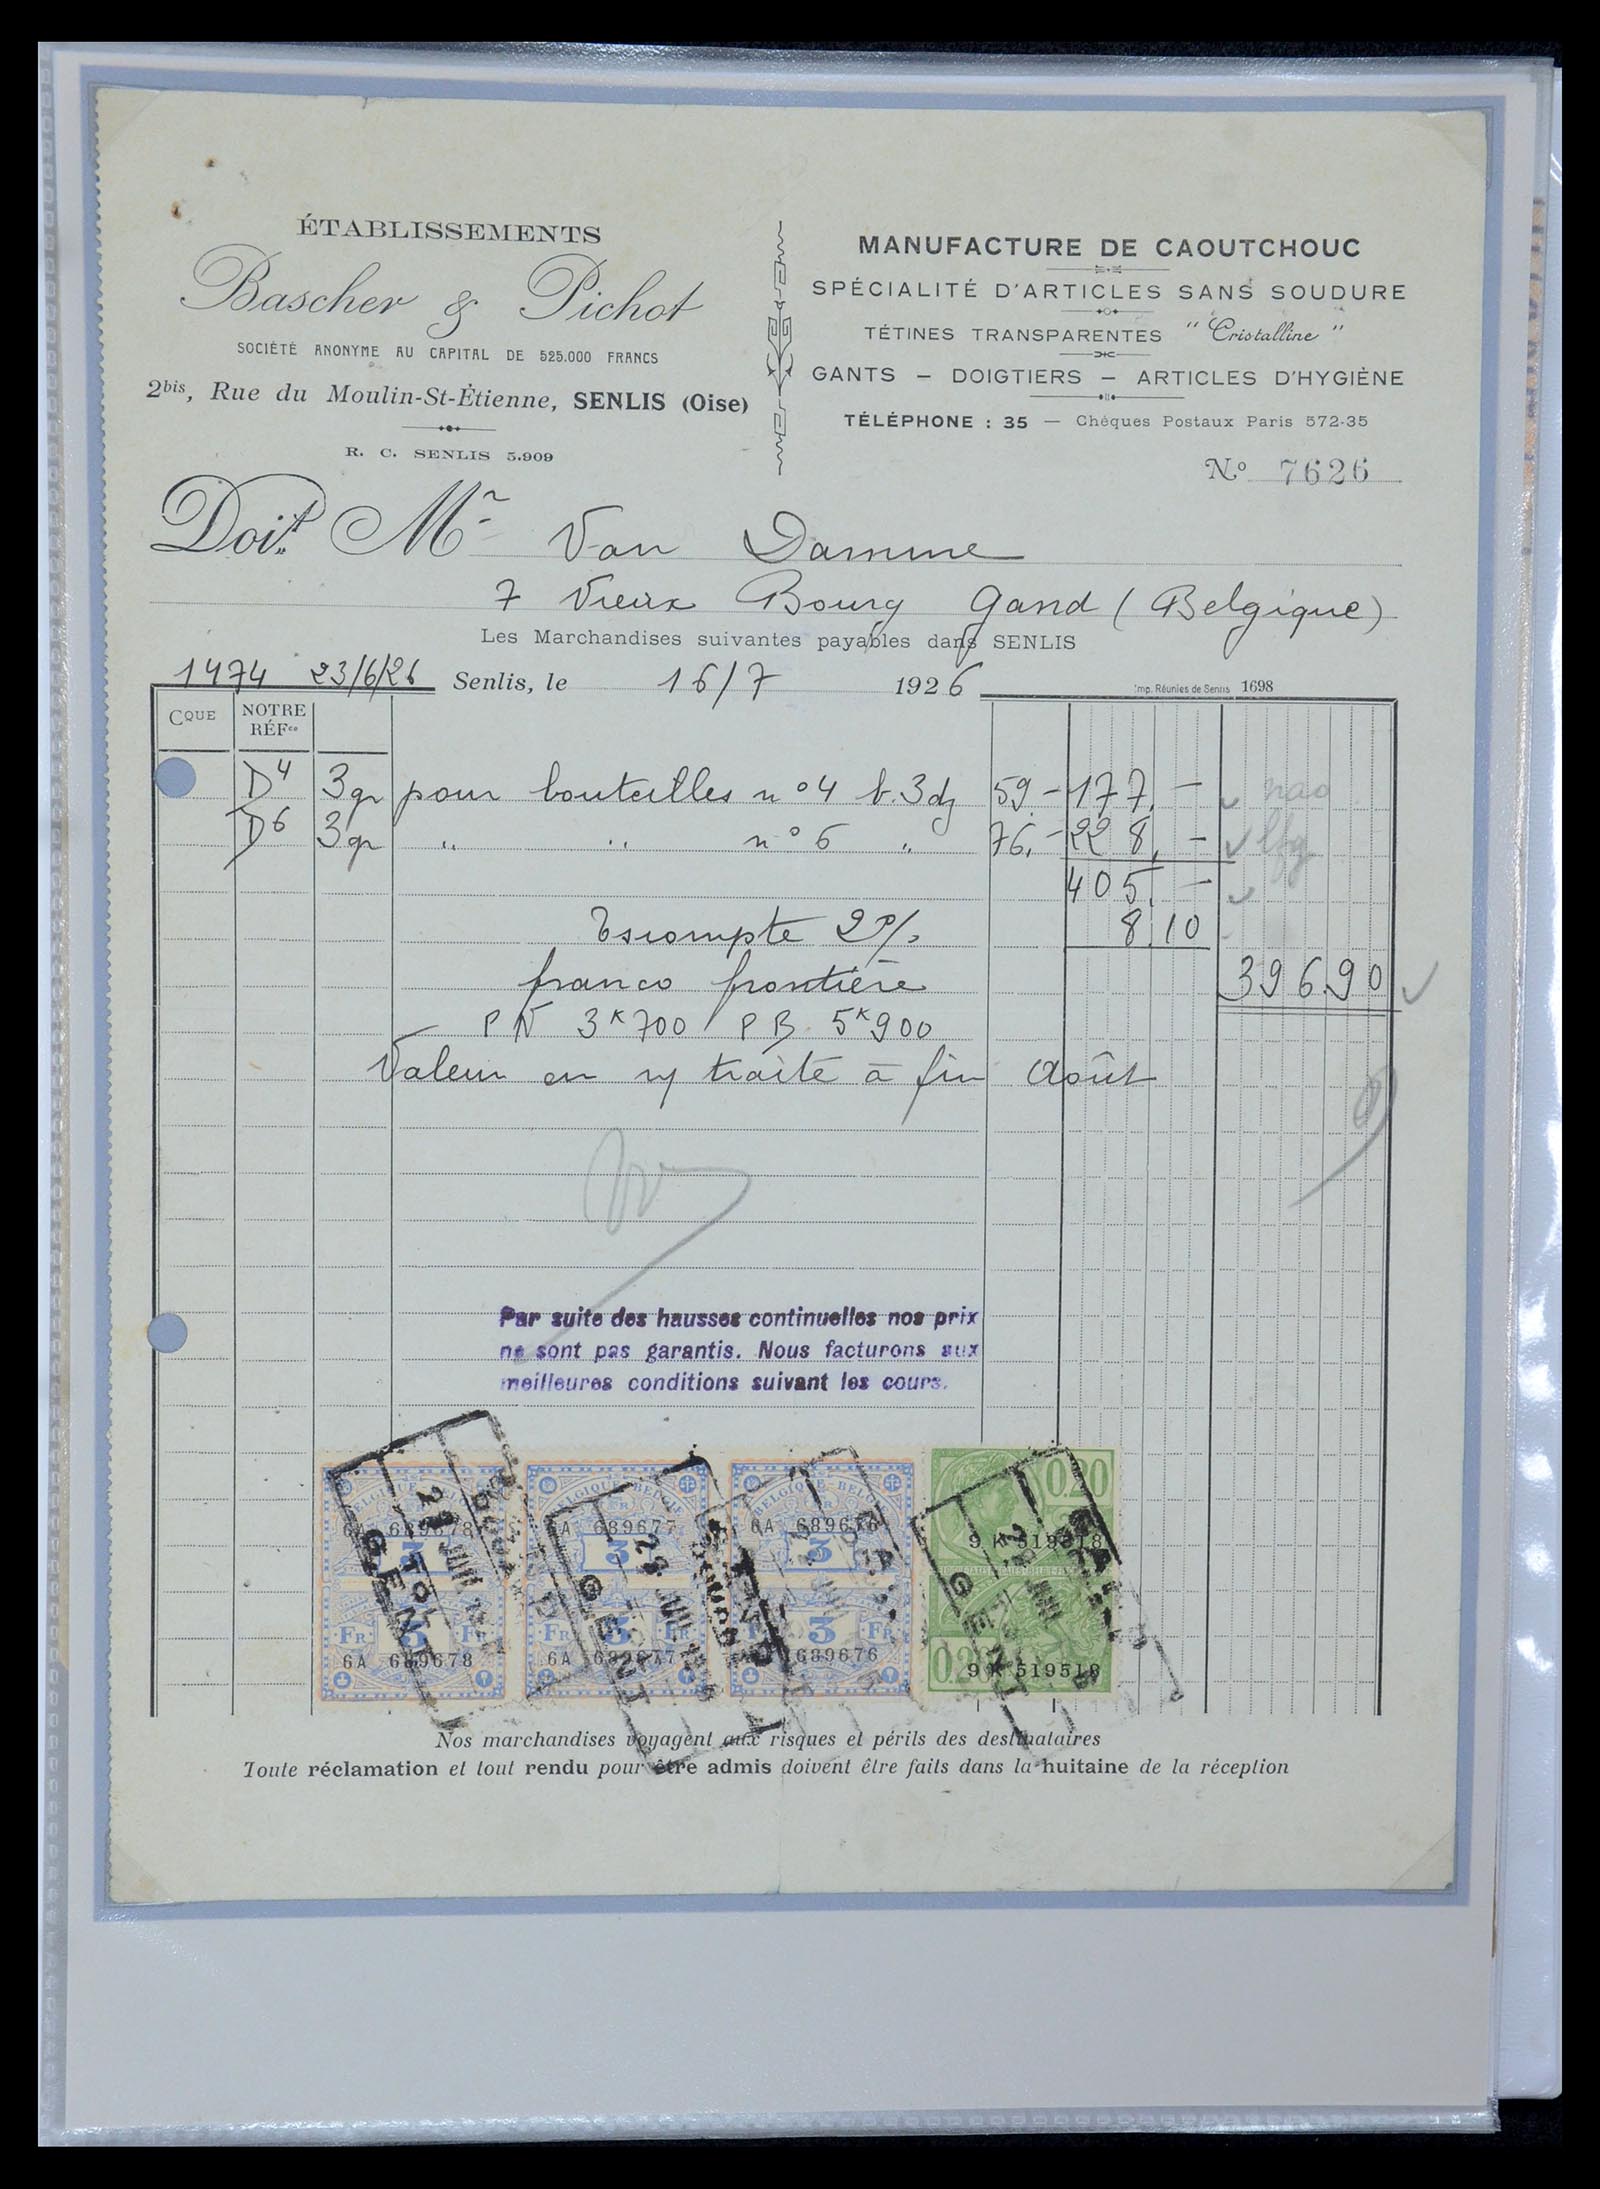 ÉTABLISSEMENTS
Bascher & Pichot
SOCIÉTÉ ANONYME AU CAPITAL DE 525.000 FRANCS
2bis, Rue du Moulin-St-Étienne, SENLIS (Oise)
R. C. SENLIS 5.909
MANUFACTURE DE CAOUTCHOUC
SPÉCIALITÉ D'ARTICLES SANS SOUDURE
TÉTINES TRANSPARENTES "Cristalline"
GANTS — DOIGTIERS — ARTICLES D'HYGIÈNE
TÉLÉPHONE : 35 — Chéques Postaux Paris 572-35
No 7626
Doit Mr Van Damme
7 Vieux Bourg Gand (Belgique)
Les Marchandises suivantes payables dans SENLIS
1474 23/6/26 Senlis, le 16/7 1926
Imp. Réunies de Senlis 1698
CQUE NOTRE RÉFce
D4 3gr pour bouteilles no 4 b. 3dz 59.- 177.-
D6 3gr " " no 6 " 76.- 228.-
405.-
Escompte 2% 8.10
franco frontière 396.90
PN 3K700 PB 5K900
Valeur en n/ traite à fin Août
Par suite des hausses continuelles nos prix
ne sont pas garantis. Nous facturons aux
meilleures conditions suivant les cours.
BELGIQUE-BELGIE BELGIQUE-BELGIE BELGIQUE-BELGIE 0.20
6A 689678 6A 689677 6A 689676 9 K 519518
3 3 3
FR 3 FR FR 3 FR 3 FR
6A 689678 6A 689677 689676 0.20 9 K 519518
GENT GENT GENT
Nos marchandises voyagent aux risques et périls des destinataires
Toute réclamation et tout rendu pour être admis doivent être faits dans la huitaine de la réception